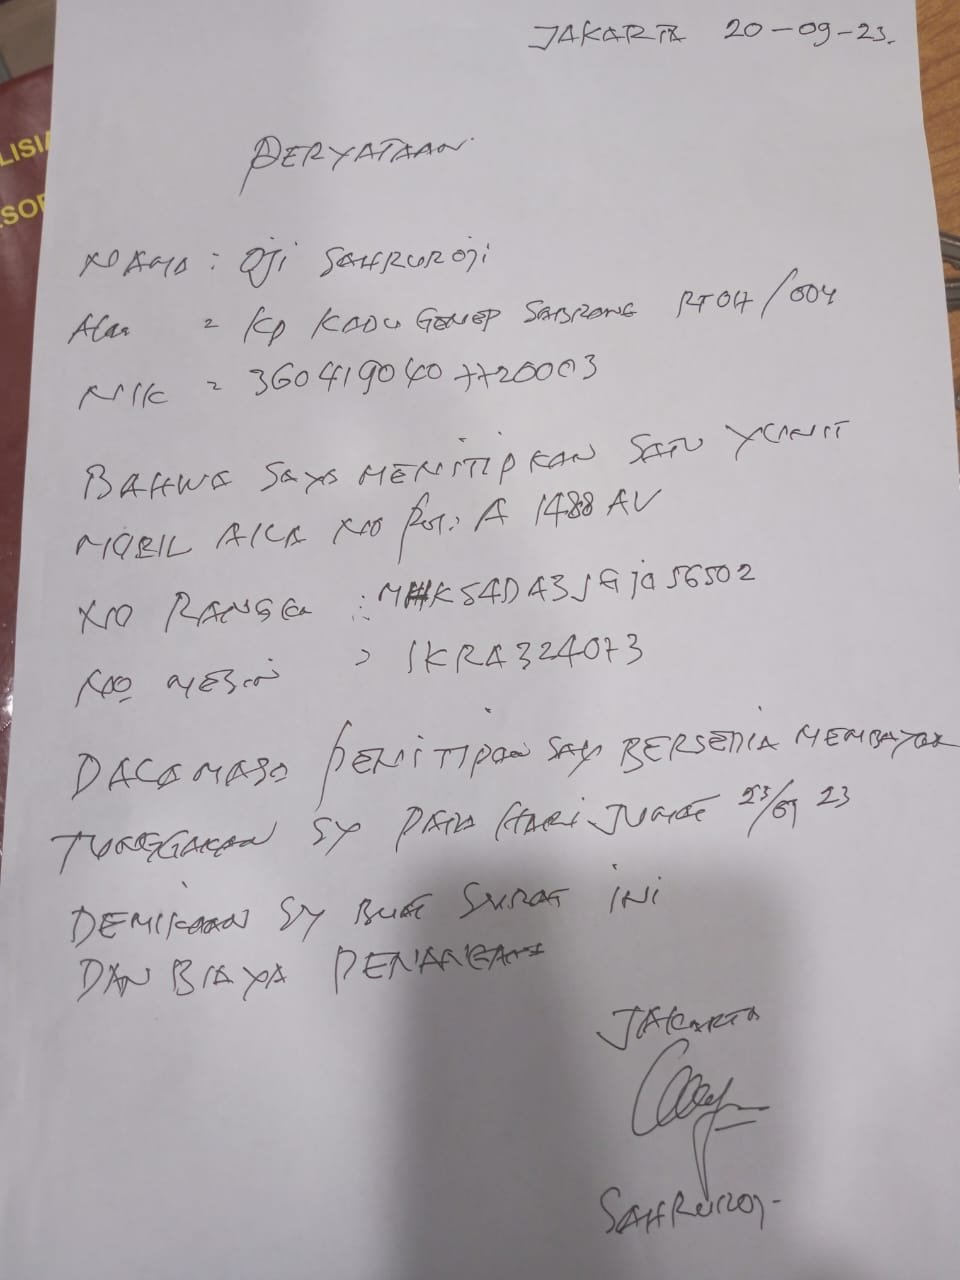 JAKARTA 20-09-23.
PERYATAAN
NAMA : OJI SAHRUROJI
Ala = KP KADU GENEP SABRANG RT 04/004
NIK = 3604190407720003
BAHWA SAYA MENITIPKAN SATU UNIT
MOBIL AILA NO pol: A 1488 AV
NO RANGKA : MHKS4DA3JGJ056502
NO MESIN > 1KRA324073
DALAMASA PENITIPAN SAYA BERSEDIA MEMBAYAR
TUNGGAKAN SY PADA HARI JUMAT 23/09 23
DEMIKIAN SY BUAT SURAT INI
DAN BIAYA
JAKARTA
SAHRUROJI
LISIA
SOR